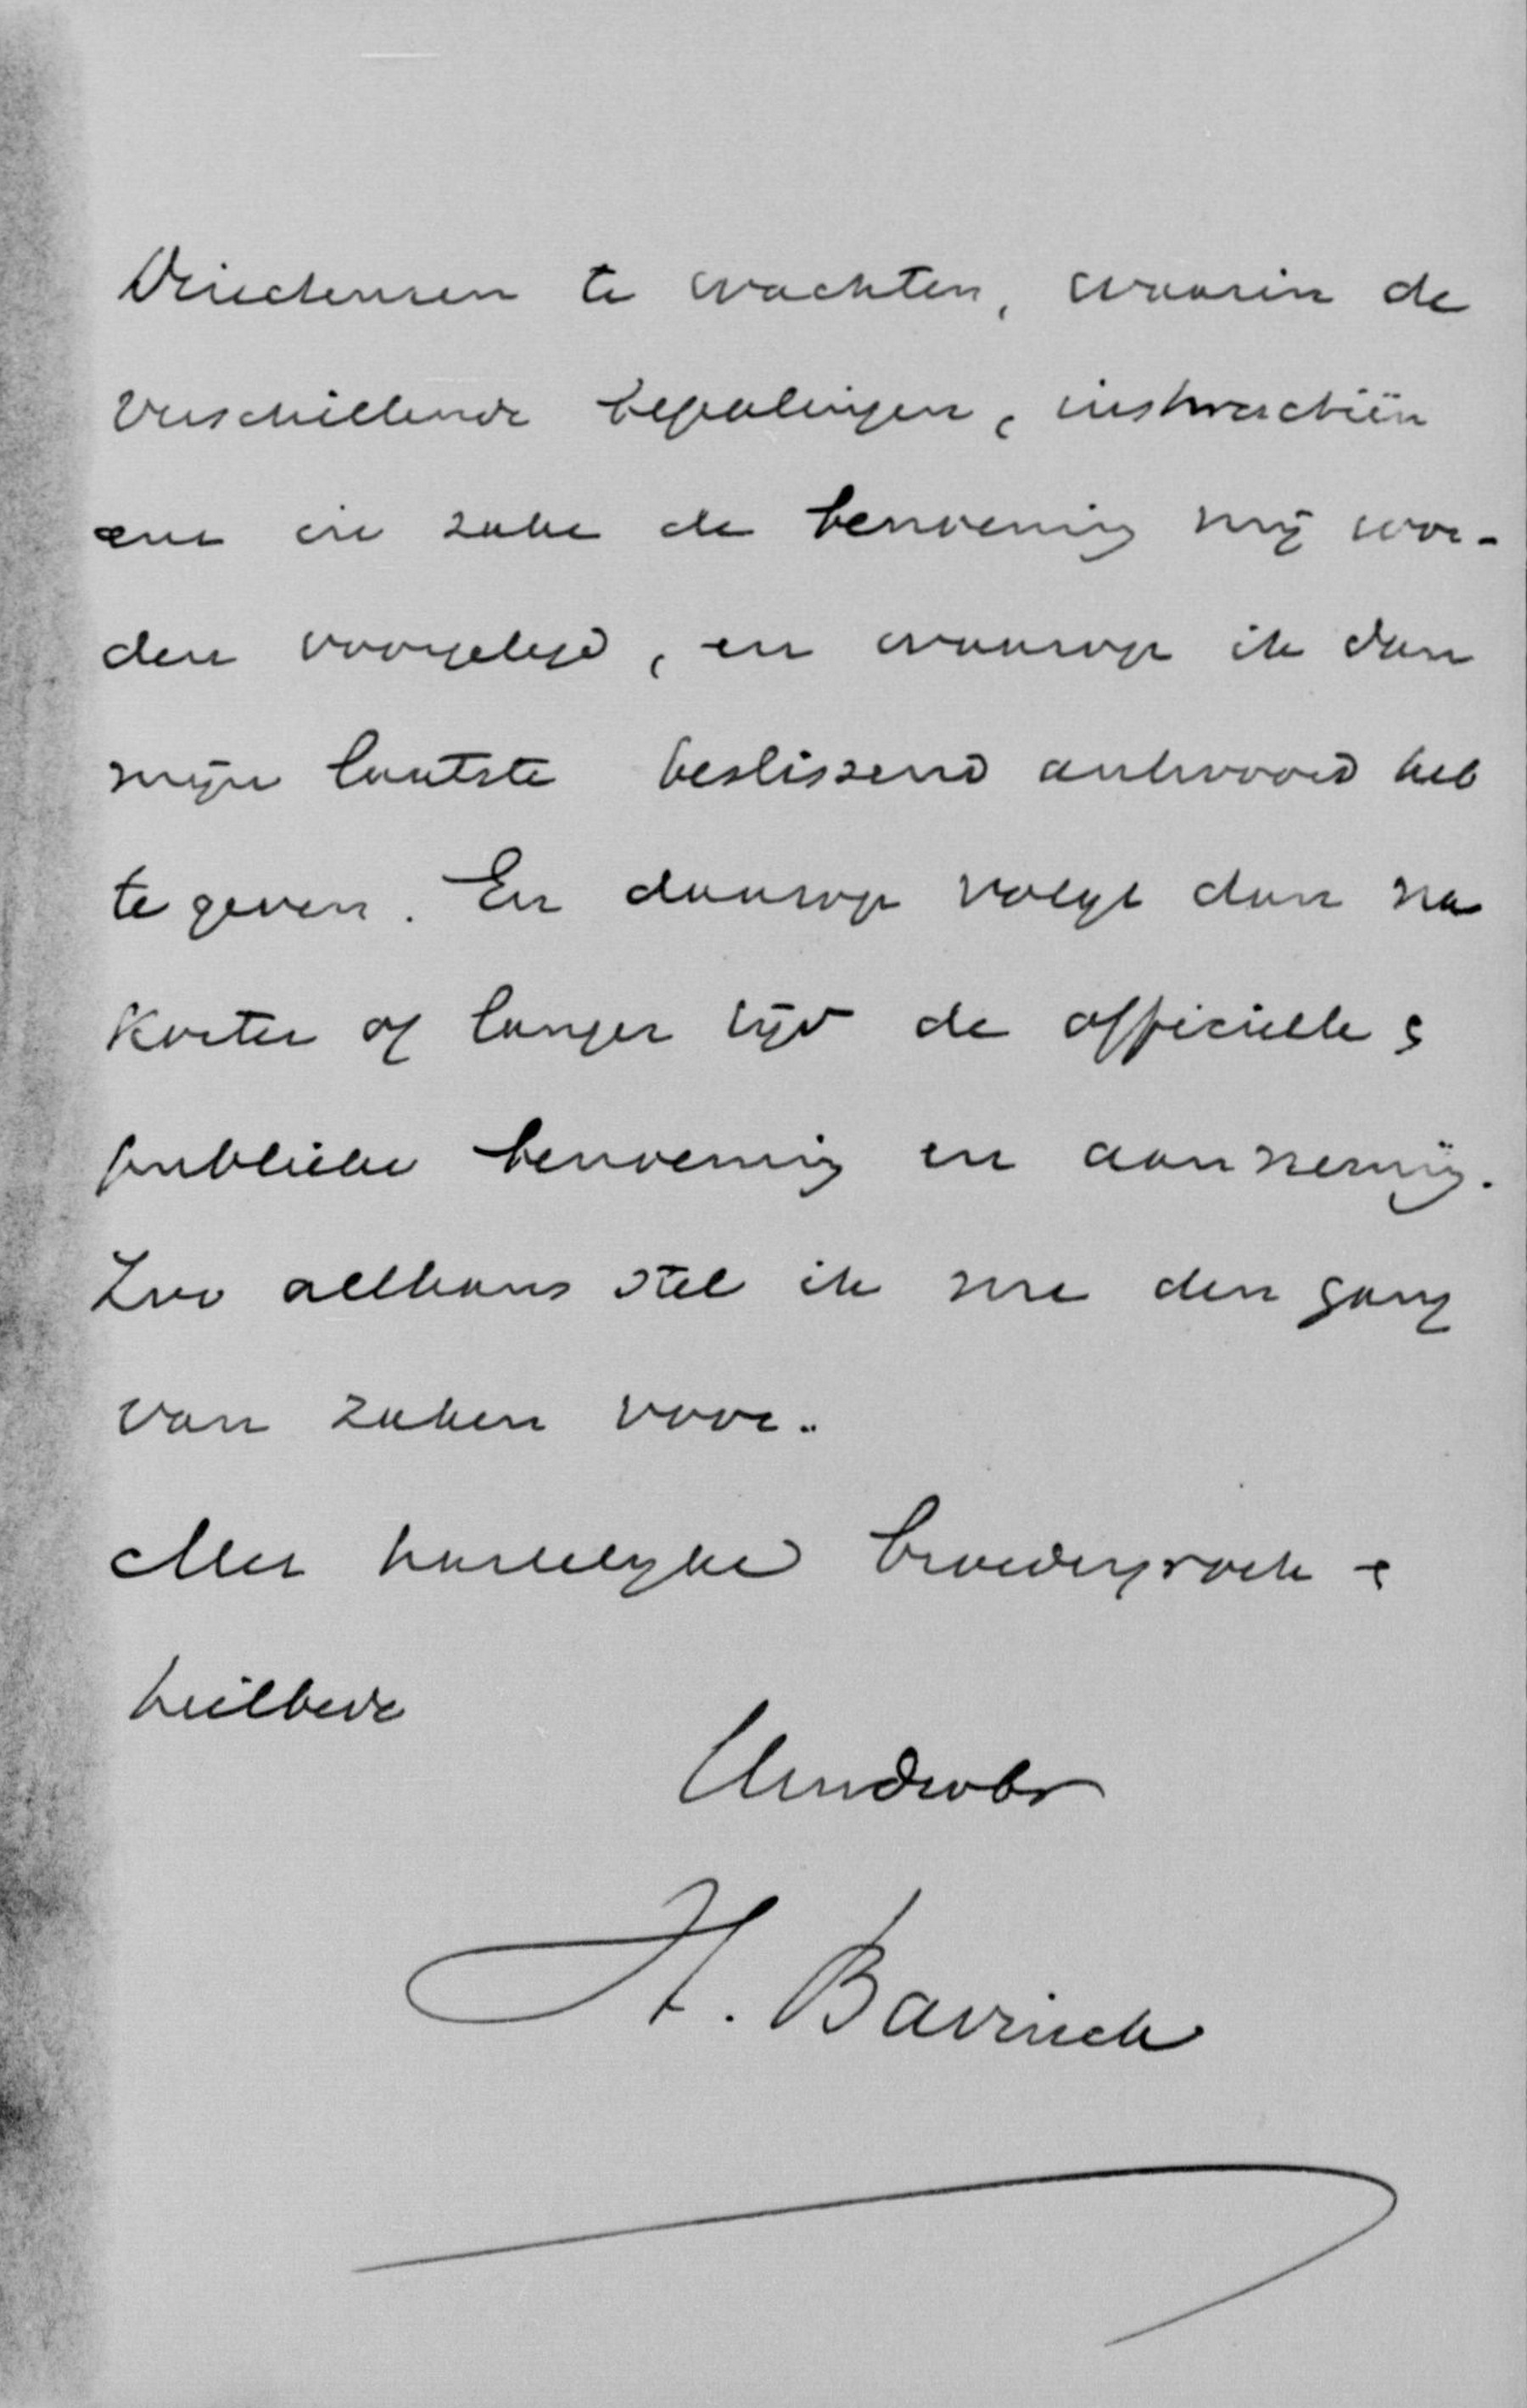 Directeuren te wachten, waarin de
verschillende bepalingen, instructiën
enz in zake de benoeming mij wor-
den voorgelegd, en waarop ik dan
mijn laatste beslissend antwoord heb
te geven. En daarop volgt dan na
korter of langer tijd de officieele &
publieke benoeming en aanneming.
Zoo althans stel ik me den gang
van zaken voor.
Met hartelyke broedergroete &
heilbede
H. Bavinck